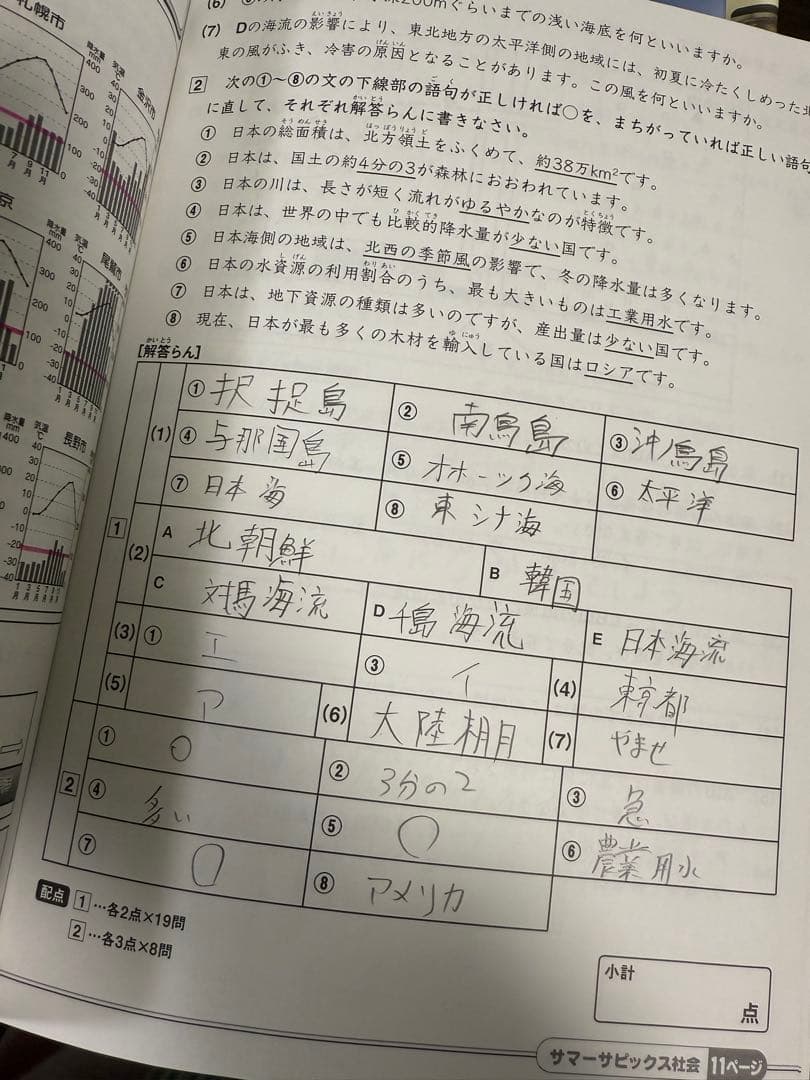 (6)
200mぐらいまでの浅い海底を何といいますか。
(7) Dの海流の影響により、東北地方の太平洋側の地域には、初夏に冷たくしめった北
東の風がふき、冷害の原因となることがあります。この風を何といいますか。
2 次の①~⑧の文の下線部の語句が正しければ○を、まちがっていれば正しい語句
に直して、それぞれ解答らんに書きなさい。
① 日本の総面積は、北方領土をふくめて、約38万km²です。
② 日本は、国土の約4分の3が森林におおわれています。
③ 日本の川は、長さが短く流れがゆるやかなのが特徴です。
④ 日本は、世界の中でも比較的降水量が少ない国です。
⑤ 日本海側の地域は、北西の季節風の影響で、冬の降水量は多くなります。
⑥ 日本の水資源の利用割合のうち、最も大きいものは工業用水です。
⑦ 日本は、地下資源の種類は多いのですが、産出量は少ない国です。
⑧ 現在、日本が最も多くの木材を輸入している国はロシアです。
[解答らん]
1
(1) ① 択捉島 ② 南鳥島 ③ 沖ノ鳥島
④ 与那国島 ⑤ オホーツク海 ⑥ 太平洋
⑦ 日本海 ⑧ 東シナ海
(2) A 北朝鮮 B 韓国
C 対馬海流 D 千島海流 E 日本海流
(3) ① エ ③ イ (4) 東京都
(5) ア (6) 大陸棚 (7) やませ
2
① ○ ② 3分の2 ③ 急
④ 多い ⑤ ○ ⑥ 農業用水
⑦ ○ ⑧ アメリカ
配点 1…各2点×19問
2…各3点×8問
小計
点
サマーサピックス社会 11ページ
札幌市
金沢市
尾鷲市
長野市
京
降水量 mm
気温 ℃